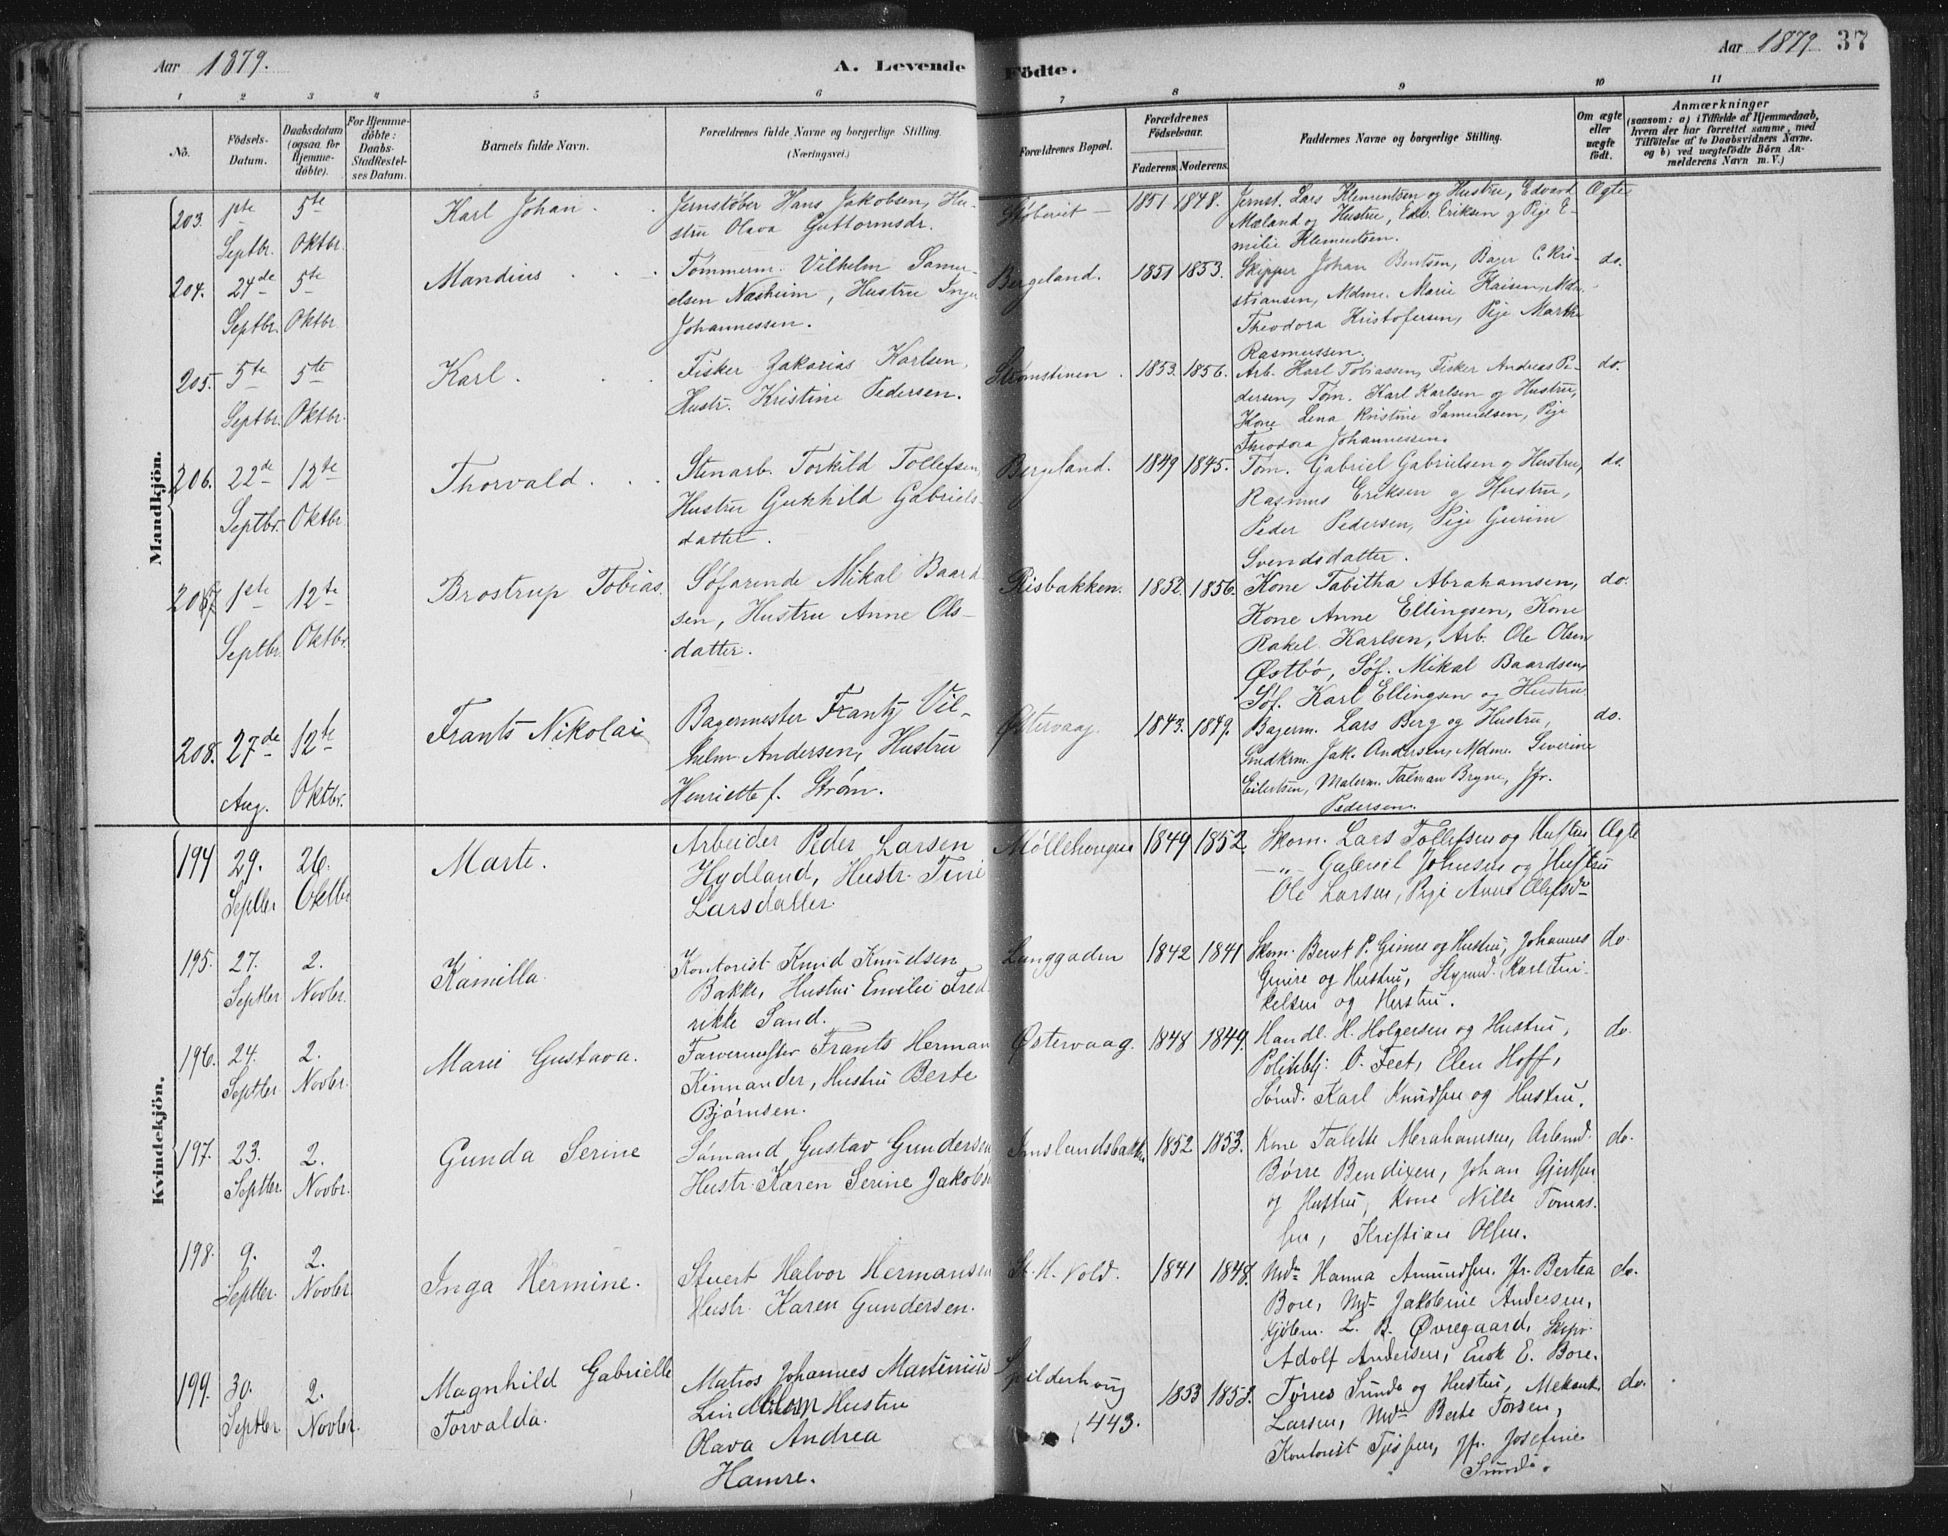 Aar 1879.
A. Levende Födte.
Aar 1879. 37
1 2 3 4 5 6 7 8 9 10 11
No.
Födsels-Datum.
Daabsdatum (ogsaa for Hjemme-døbte).
For Hjemme-døbte: Daabs-Stadfæstel-ses Datum.
Barnets fulde Navn.
Forældrenes fulde Navne og borgerlige Stilling.
(Næringsvei.)
Forældrenes Bopæl.
Forældrenes Födselsaar.
Faderens. Moderens.
Faddernes Navne og borgerlige Stilling.
Om ægte eller uægte födt.
Anmærkninger
(saasom: a) i Tilfælde af Hjemmedaab,
hvem der har forrettet samme, med
Tilföielse af to Daabsvidners Navne.
og b) ved uægtefödte Börn An-
melderens Navn m. V.)
Mandkjön.
203. 1ste Septbr. 5te Oktbr. Karl Johan.
Jernstøber Hans Jakobsen, Hu-
stru Olava Guttormsdr.
Støberiet 1851 1848.
Jernst. Lars Klementsen og Hustru, Edvard
Mæland og Hustru, Edv. Eriksen og Pige E-
milie Klementsen.
Ægte
204. 24de Septbr. 5te Oktbr. Mandius
Tømmerm. Vilhelm Samu-
elsen Næsheim, Hustru Inger
Johannessen.
Bergeland. 1851 1853.
Skipper Johan Bentsen, Bager C. Kri-
stiansen, Mdme. Marie Kaisen, Mdm
Theodora Kristofersen, Pige Marthe
Rasmussen.
do.
205. 5te Septbr. 5te Oktbr. Karl.
Fisker Zakarias Karlsen,
Hustr. Kristine Pedersen.
Strømstenen. 1853. 1856.
Arb. Karl Tobiassen, Fisker Andreas Pe-
dersen, Tøm. Karl Karlsen og Hustru,
Kone Lena Kristine Samuelsen, Pige
Theodora Johannessen.
do.
206. 22de Septbr. 12te Oktbr. Thorvald.
Stenarb. Torkild Tollefsen,
Hustru Gunhild Gabriels-
datter.
Bergeland. 1849 1845.
Tøm. Gabriel Gabrielsen og Hustru,
Rasmus Eriksen og Hustru,
Peder Pedersen, Pige Gurine
Svendsdatter.
do.
207. 1ste Septbr. 12te Oktbr. Brostrup Tobias.
Søfarende Mikal Baard-
sen, Hustru Anne Ols-
datter.
Risbakken. 1852. 1856.
Kone Tabitha Abrahamsen,
Kone Anne Ellingsen, Kone
Rakel Karlsen, Arb. Ole Olsen
Østbø, Søf. Mikal Baardsen,
Søf. Karl Ellingsen og Hustru
do.
208. 27de Aug. 12te Oktbr. Frants Nikolai
Bagermester Frantz Vil-
helm Andersen, Hustru
Henriette f. Strøm.
Østervaag. 1843. 1849.
Bagerm. Lars Berg og Hustru,
Jak. Andersen, Mdme. Severine
Eilertsen, Malerm. Talman Bryne, Jfr.
Pedersen.
do.
Kvindekjön.
194 29. Septbr 26. Oktbr Marte.
Arbeider Peder Larsen
Hydland, Hustr. Tine
Larsdatter.
Møllehougen 1849 1852.
Skom. Lars Tollefsen og Hustru
-"- Gabriel Johnsen og Hustru
Ole Larsen, Pige Anne Olefsdr
Ægte
195. 27. Septbr 2. Novbr. Kamilla.
Kontorist Knud Knudsen
Bakke, Hustru Emilie Fred-
rikke Sand.
Langgaden 1842 1841
Skom. Bernt P. Gimre og Hustru, Johannes
Gimre og Hustru, Styrmd. Karl Fin-
kelsen og Hustru.
do.
196. 24. Septbr 2. Novbr. Marie Gustava.
Farvermester Frants Herman
Kinnander, Hustru Berte
Bjørnsen.
Østervaag. 1848 1849.
Handl. H. Holgersen og Hustru,
Politibtj. O. Feet, Elen Hoff,
Sømd. Karl Knudsen og Hustru.
do.
197. 23. Septbr. 2. Novbr. Gunda Serine
Sømand Gustav Gundersen
Hustr. Karen Serine Jakobs
Imslandsbakken 1852. 1853.
Kone Talette Abrahamsen, Arbmd.
Børre Bendixen, Johan Gjertsen
og Hustru, Kone Nille Tomas-
sen, Kristian Olsen.
do.
198. 9. Septbr. 2. Novbr. Inga Hermine.
Stuert Halvor Hermansen
Hustr. Karen Gundersen.
St. H. Vold. 1841 1848.
Md. Hanna Amundsen. Jfr. Bertea
Bore, Md. Jakobine Andersen,
Kjøbm. L. B. Øvregaard, Skipr.
Adolf Andersen, Enok E. Bore.
do.
199. 30. Septbr 2. Novbr. Magnhild Gabrielle
Torvalda.
Matros Johannes Martinius
Lindblom Hustru
Olava Andrea
Hamre.
Spilderhoug
443. 1853 1858.
Tørres Sunde og Hustru, Mekank.
Larsen, Md. Berte Torsen,
Kontorist, Jfr. Josefine
Sunde.
do.